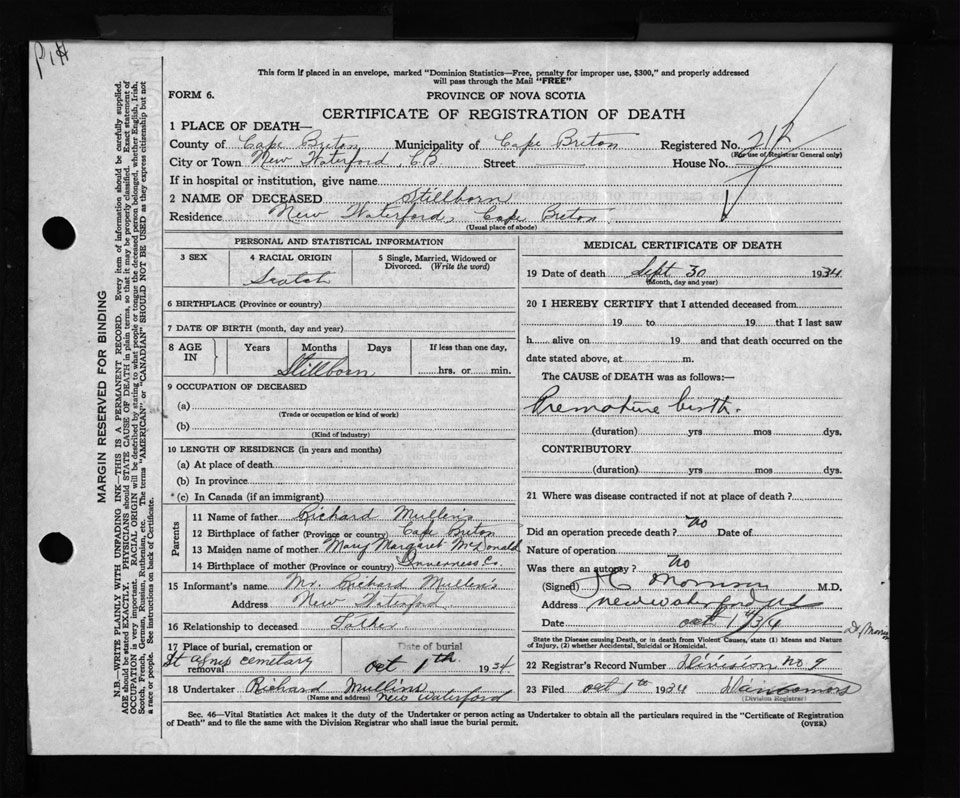 This form if placed in an envelope, marked "Dominion Statistics—Free, penalty for improper use, $300," and properly addressed
will pass through the Mail "FREE"
FORM 6.
PROVINCE OF NOVA SCOTIA
CERTIFICATE OF REGISTRATION OF DEATH
1 PLACE OF DEATH—
County of Cape Breton Municipality of Cape Breton Registered No. 212
(For use of Registrar General only)
City or Town New Waterford, CB Street House No.
If in hospital or institution, give name
2 NAME OF DECEASED Stillborn
Residence New Waterford, Cape Breton
(Usual place of abode)
PERSONAL AND STATISTICAL INFORMATION
3 SEX 4 RACIAL ORIGIN 5 Single, Married, Widowed or Divorced. (Write the word)
Scotch
6 BIRTHPLACE (Province or country)
7 DATE OF BIRTH (month, day and year)
8 AGE IN Years Months Days If less than one day,
Stillborn hrs. or min.
9 OCCUPATION OF DECEASED
(a)
(Trade or occupation or kind of work)
(b)
(Kind of industry)
10 LENGTH OF RESIDENCE (in years and months)
(a) At place of death
(b) In province
* (c) In Canada (if an immigrant)
Parents
11 Name of father Richard Mullins
12 Birthplace of father (Province or country) Cape Breton
13 Maiden name of mother Mary Margaret McDonald
14 Birthplace of mother (Province or country) Inverness Co.
15 Informant's name Mr. Richard Mullens
Address New Waterford
16 Relationship to deceased Father
17 Place of burial, cremation or removal Date of burial
St Agnes cemetary Oct 1th 1934
18 Undertaker Richard Mullins
(Name and address) New Waterford
MEDICAL CERTIFICATE OF DEATH
19 Date of death Sept 30 1934
(Month, day and year)
20 I HEREBY CERTIFY that I attended deceased from
19 to 19 that I last saw
h alive on 19 and that death occurred on the
date stated above, at m.
The CAUSE of DEATH was as follows:—
Premature birth.
(duration) yrs mos dys.
CONTRIBUTORY
(duration) yrs mos dys.
21 Where was disease contracted if not at place of death?
Did an operation precede death? No Date of
Nature of operation
Was there an autopsy? No
(Signed) M.D,
Address
Date Oct 1/34
State the Disease causing Death, or in death from Violent Causes, state (1) Means and Nature
of Injury, (2) whether Accidental, Suicidal or Homicidal.
22 Registrar's Record Number Division No 9
23 Filed Oct 1th 1934
(Division Registrar)
Sec. 46—Vital Statistics Act makes it the duty of the Undertaker or person acting as Undertaker to obtain all the particulars required in the "Certificate of Registration
of Death" and to file the same with the Division Registrar who shall issue the burial permit. (OVER)
MARGIN RESERVED FOR BINDING
N.B.—WRITE PLAINLY WITH UNFADING INK—THIS IS A PERMANENT RECORD. Every item of information should be carefully supplied.
AGE should be stated EXACTLY. PHYSICIANS should STATE CAUSE OF DEATH in plain terms, so that it may be properly classified. Exact statement of
OCCUPATION is very important. RACIAL ORIGIN will be described by stating to what people or tongue the deceased person belonged, whether English, Irish,
Scotch, French, German, Russian, Ruthenian, etc. The terms "AMERICAN" or "CANADIAN" SHOULD NOT BE USED as they express citizenship but not
a race or people. See instructions on back of Certificate.